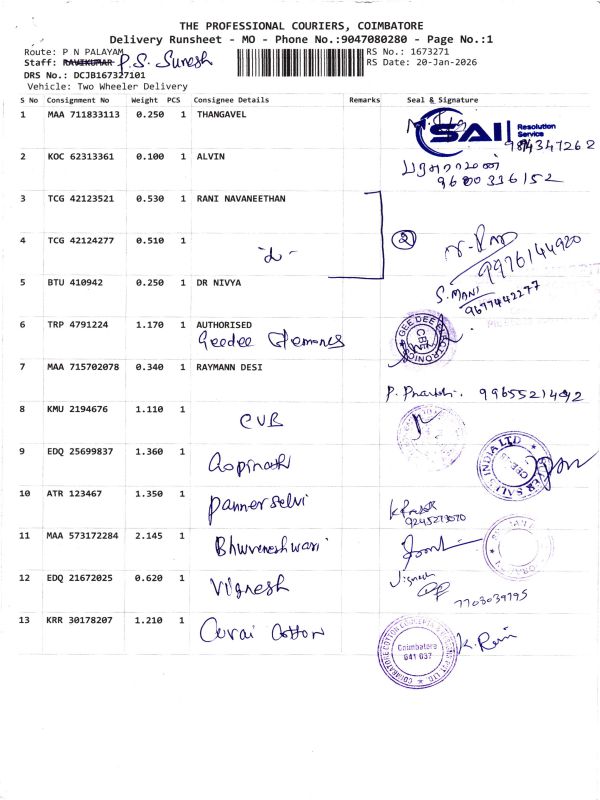 THE PROFESSIONAL COURIERS, COIMBATORE
Delivery Runsheet - MO - Phone No.:9047080280 - Page No.:1
Route: P N PALAYAM
RS No.: 1673271
Staff: RAVIKUMAR P.S. Suresh
RS Date: 20-Jan-2026
DRS No.: DCJB167327101
Vehicle: Two Wheeler Delivery
S No Consignment No Weight PCS Consignee Details Remarks Seal & Signature
1 MAA 711833113 0.250 1 THANGAVEL
SAI Resolution Service
9894347262
2 KOC 62313361 0.100 1 ALVIN
பரசுராமன்
9600336152
3 TCG 42123521 0.530 1 RANI NAVANEETHAN
4 TCG 42124277 0.510 1
2
9976144920
5 BTU 410942 0.250 1 DR NIVYA
S. MANI
9677442277
6 TRP 4791224 1.170 1 AUTHORISED
Geedee
GEE DEE ELECTRONICS CBE
7 MAA 715702078 0.340 1 RAYMANN DESI
9965521492
8 KMU 2194676 1.110 1
CUB
9 EDQ 25699837 1.360 1
Gopinath
INDIA LTD
10 ATR 123467 1.350 1
Pannerselvi
9245273070
11 MAA 573172284 2.145 1
Bhuvaneshwari
12 EDQ 21672025 0.620 1
Vignesh
Vignesh
7703039795
13 KRR 30178207 1.210 1
Cotton
Coimbatore
641 037
K. Rani